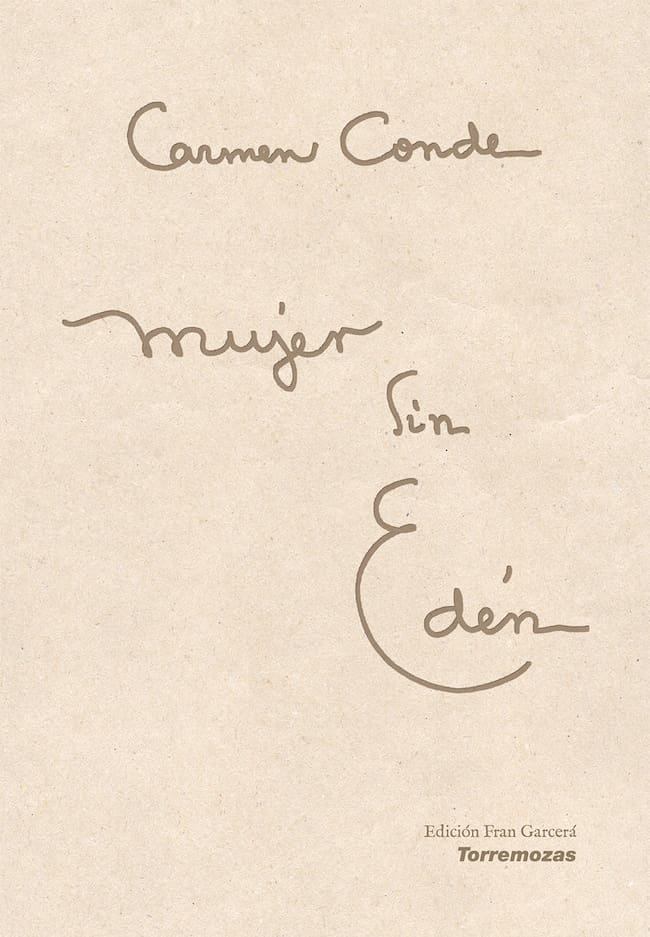 Carmen Conde
mujer
sin
Edén
Edición Fran Garcerá
Torremozas